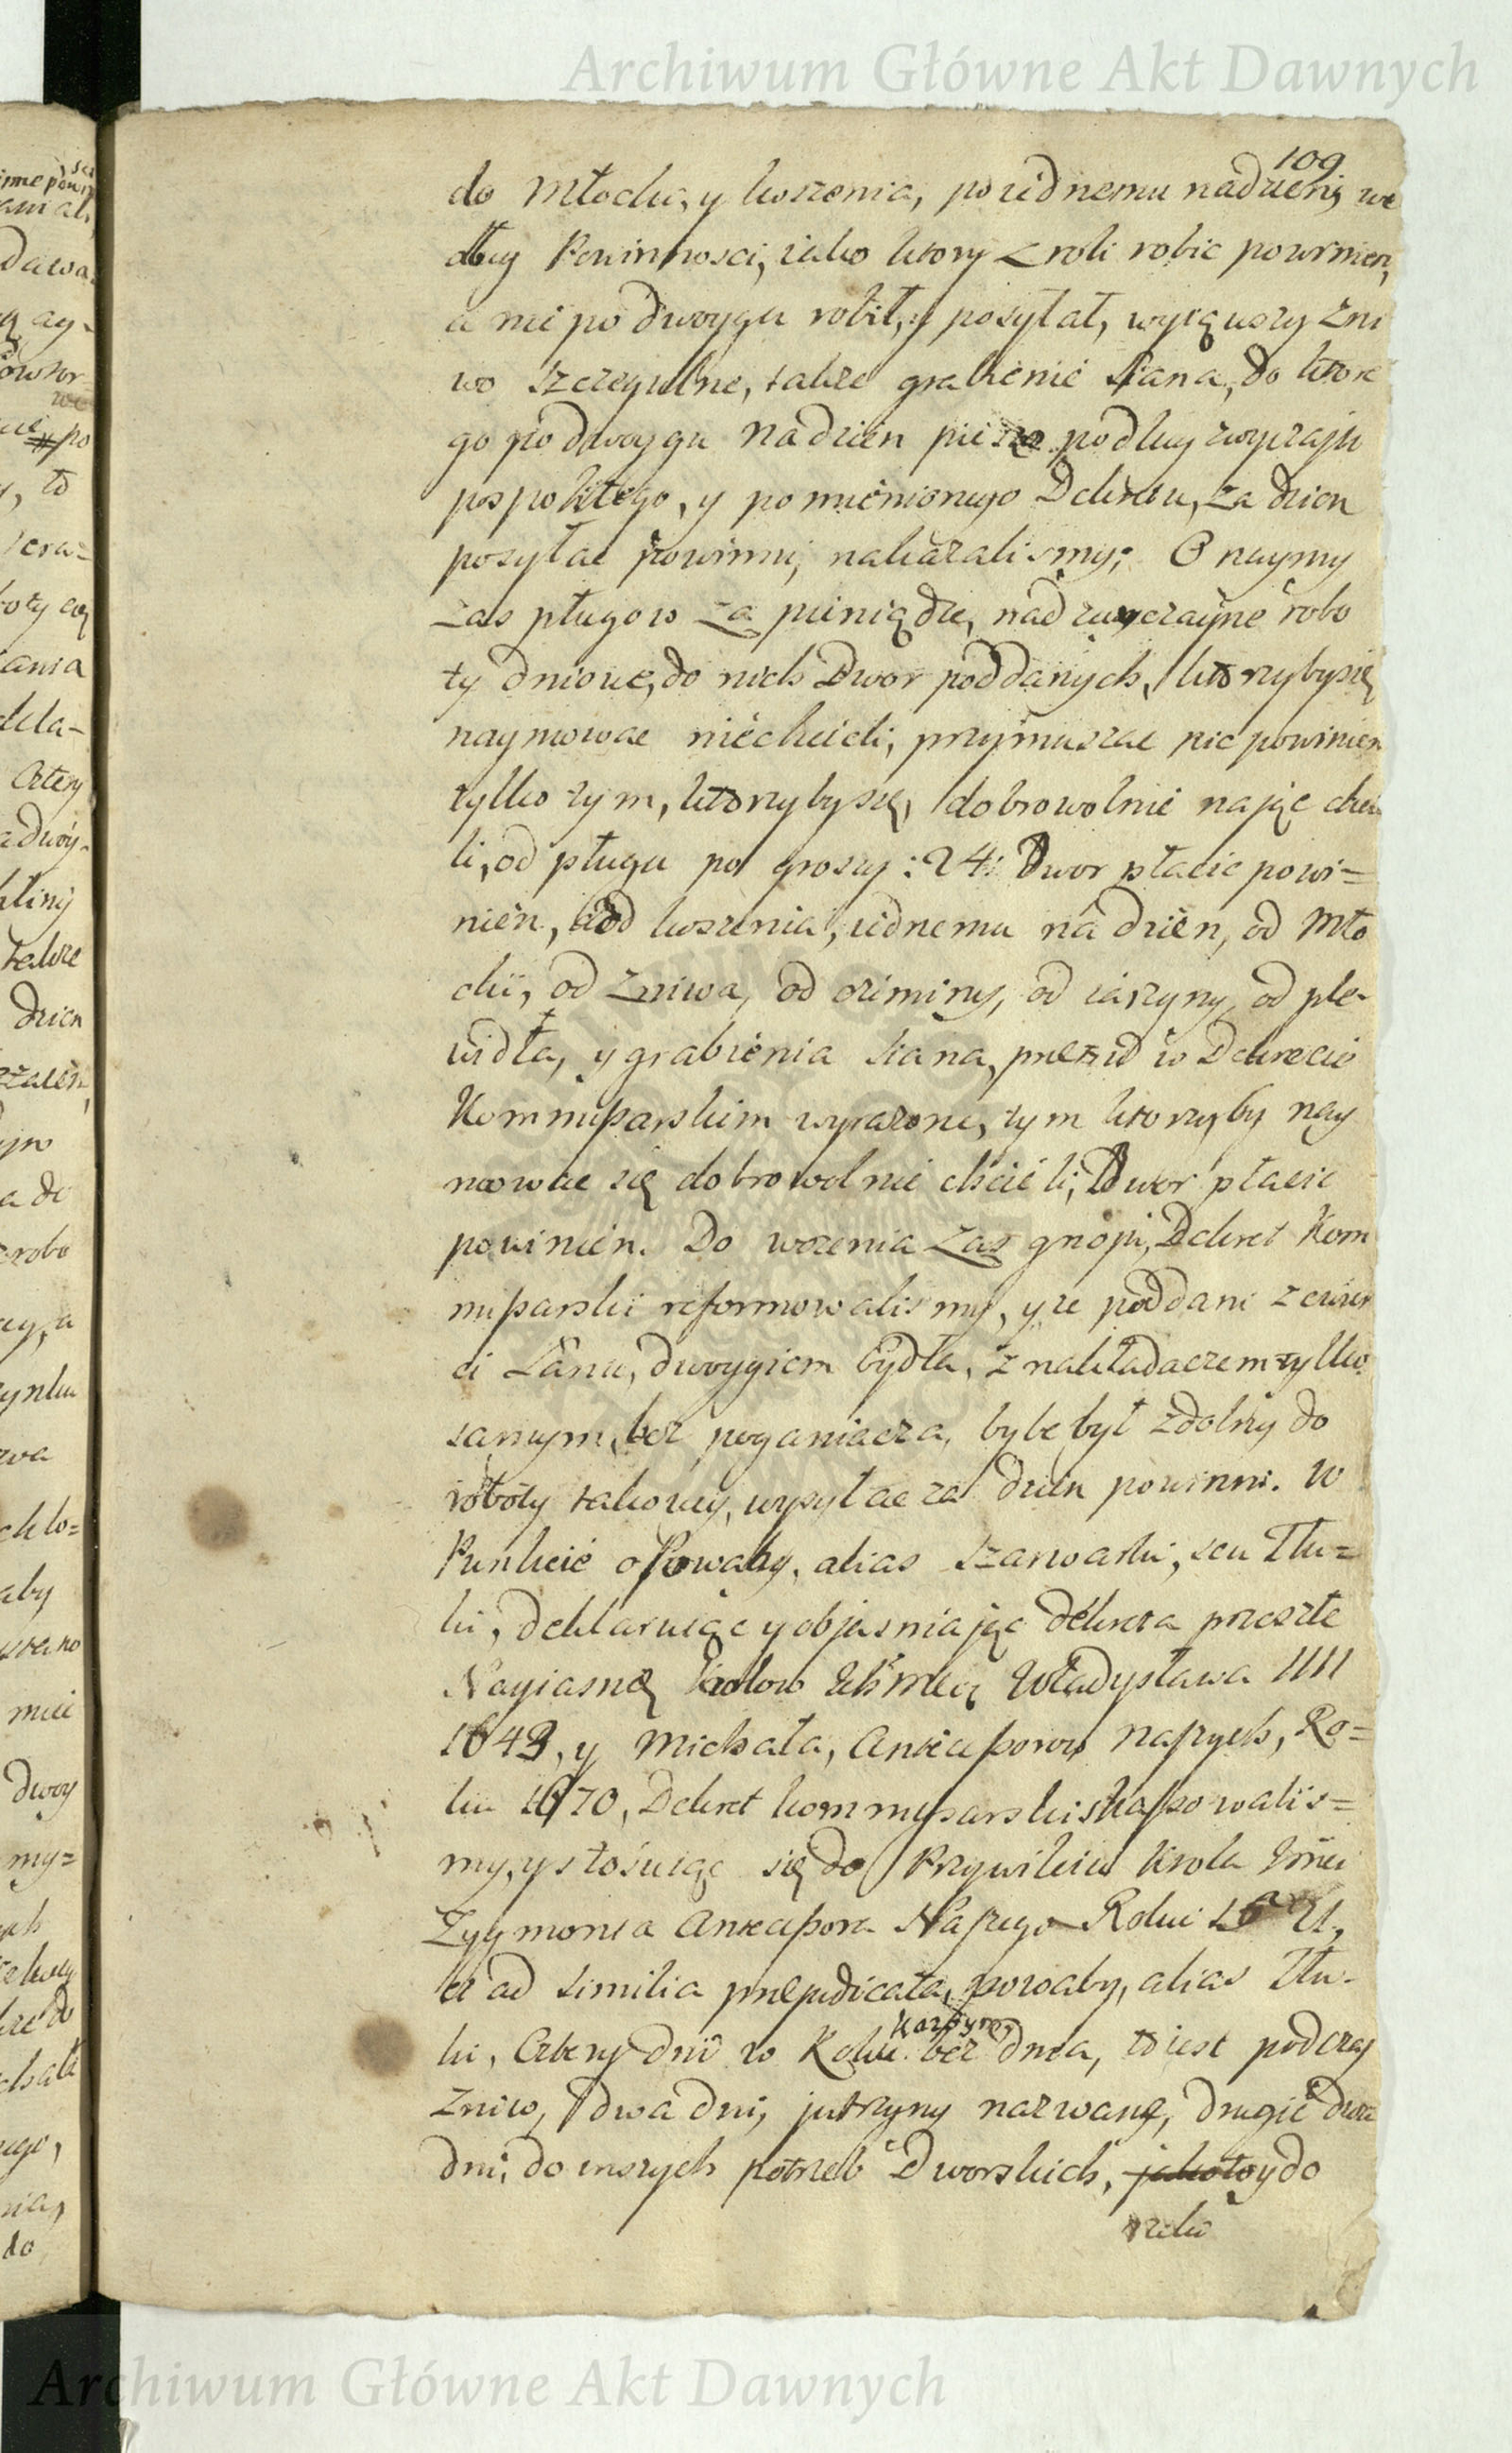 Archiwum Główne Akt Dawnych
109
do Młocku, y koszenia, po iednemu nadzień, we
dług Powinnosci, iako ktory z roli robic powinien,
a nie po dwoygu robił, y posyłał, wyiąwszy Zni
wo szczegulne, także grabienie Siana, do ktore
go po dwoygu na dzien pieszo podług zwyczaju
pospolitego, y pomienionego Dekretu, za dzien
posyłac powinni, nakazalismy; O naymy
zas pługow za pieniądze, nad zwyczayne robo
ty dniowe, do nich Dwor poddanych, ktorzyby się
naymowac niechcieli, przymuszac nie powinien
tylko tym, ktorzyby się, dobrowolnie nająć chcie
li, od pługu po groszy : 24: Dwor płacic powi=
nien, a od koszenia, iednemu na dzien, od Mło
cki, od Zniwa, od oziminy, od iarzyny, od ple-
widła, y grabienia siana, precz w Dekrecie
Kommissarskim wyrazone, tym ktorzyby nay
mowac się dobrowolnie chcieli, Dwor płacic
powinien. Do wozenia Zas gnoju, Dekret Kom
missarski reformowalismy, y ze poddani z cwier
ci Łanu, dwoygiem bydła, z nakładaczem tylko
samym, bez poganiacza, byle był zdolny do
roboty takowey, wysyłac za dzien powinni. W
Punkcie o Powaby, alias szarwarki, seu Tłu=
ki, deklaruiąc y objasniając dekreta przeszłe
Nayiasnię Krolow Ichmcią Władysława IIII
1643, y Michała, Antecessorow Naszych, Ro=
ku 1670, Dekret kommissarski skassowalis=
my, y stosuiąc się do Przywileiu Krola Jmci
Zygmonta Antecessora Naszego Roku
et ad similia prejudicata, powaby, alias Tłu-
ki, Cztery dni w Roku bez dnia, to iest podczas
Zniw, dwa dni, jutrzyny nazwane, drugie dwa
dni, do inszych potrzeb Dworskich, y do
Archiwum Główne Akt Dawnych